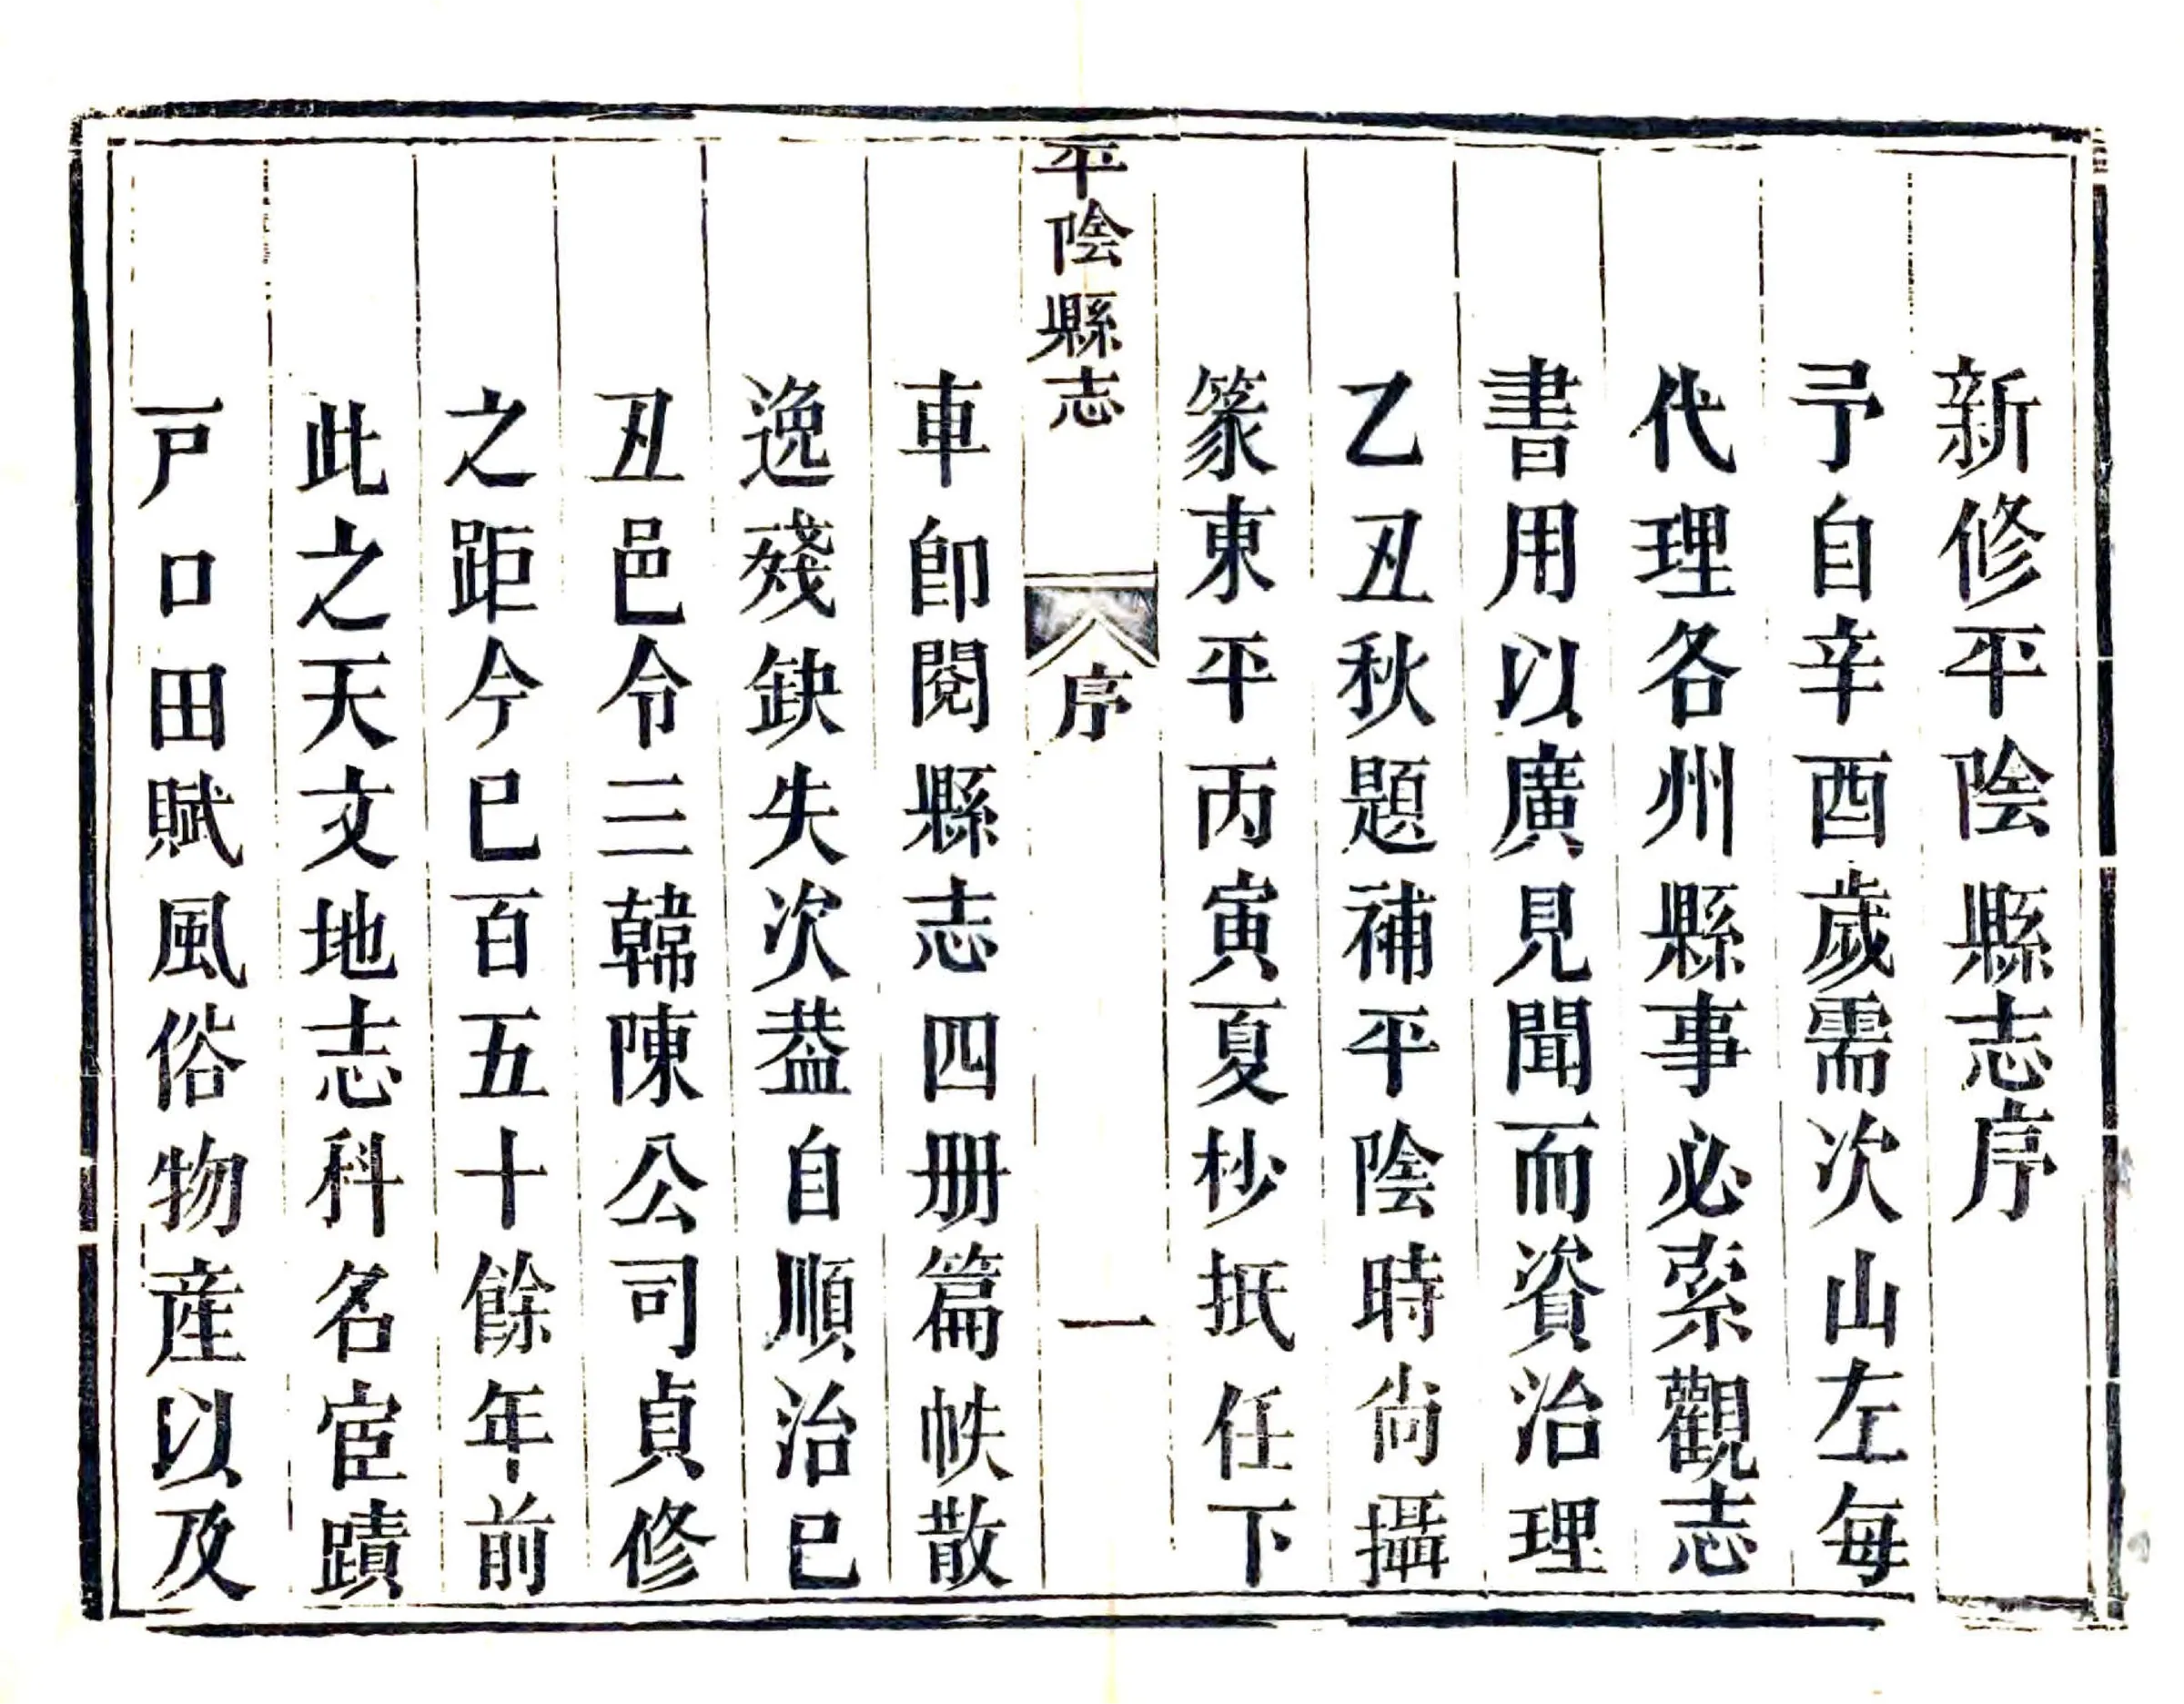 新修平陰縣志序
予自辛酉歲需次山左每
代理各州縣事必索觀志
書用以廣見聞而資治理
乙丑秋題補平陰時尚攝
篆東平丙寅夏杪抵任下
平陰縣志 序 一
車卽閱縣志四册篇帙散
逸殘缺失次葢自順治己
丑邑令三韓陳公司貞修
之距今已百五十餘年前
此之天文地志科名宦蹟
戸口田賦風俗物産以及